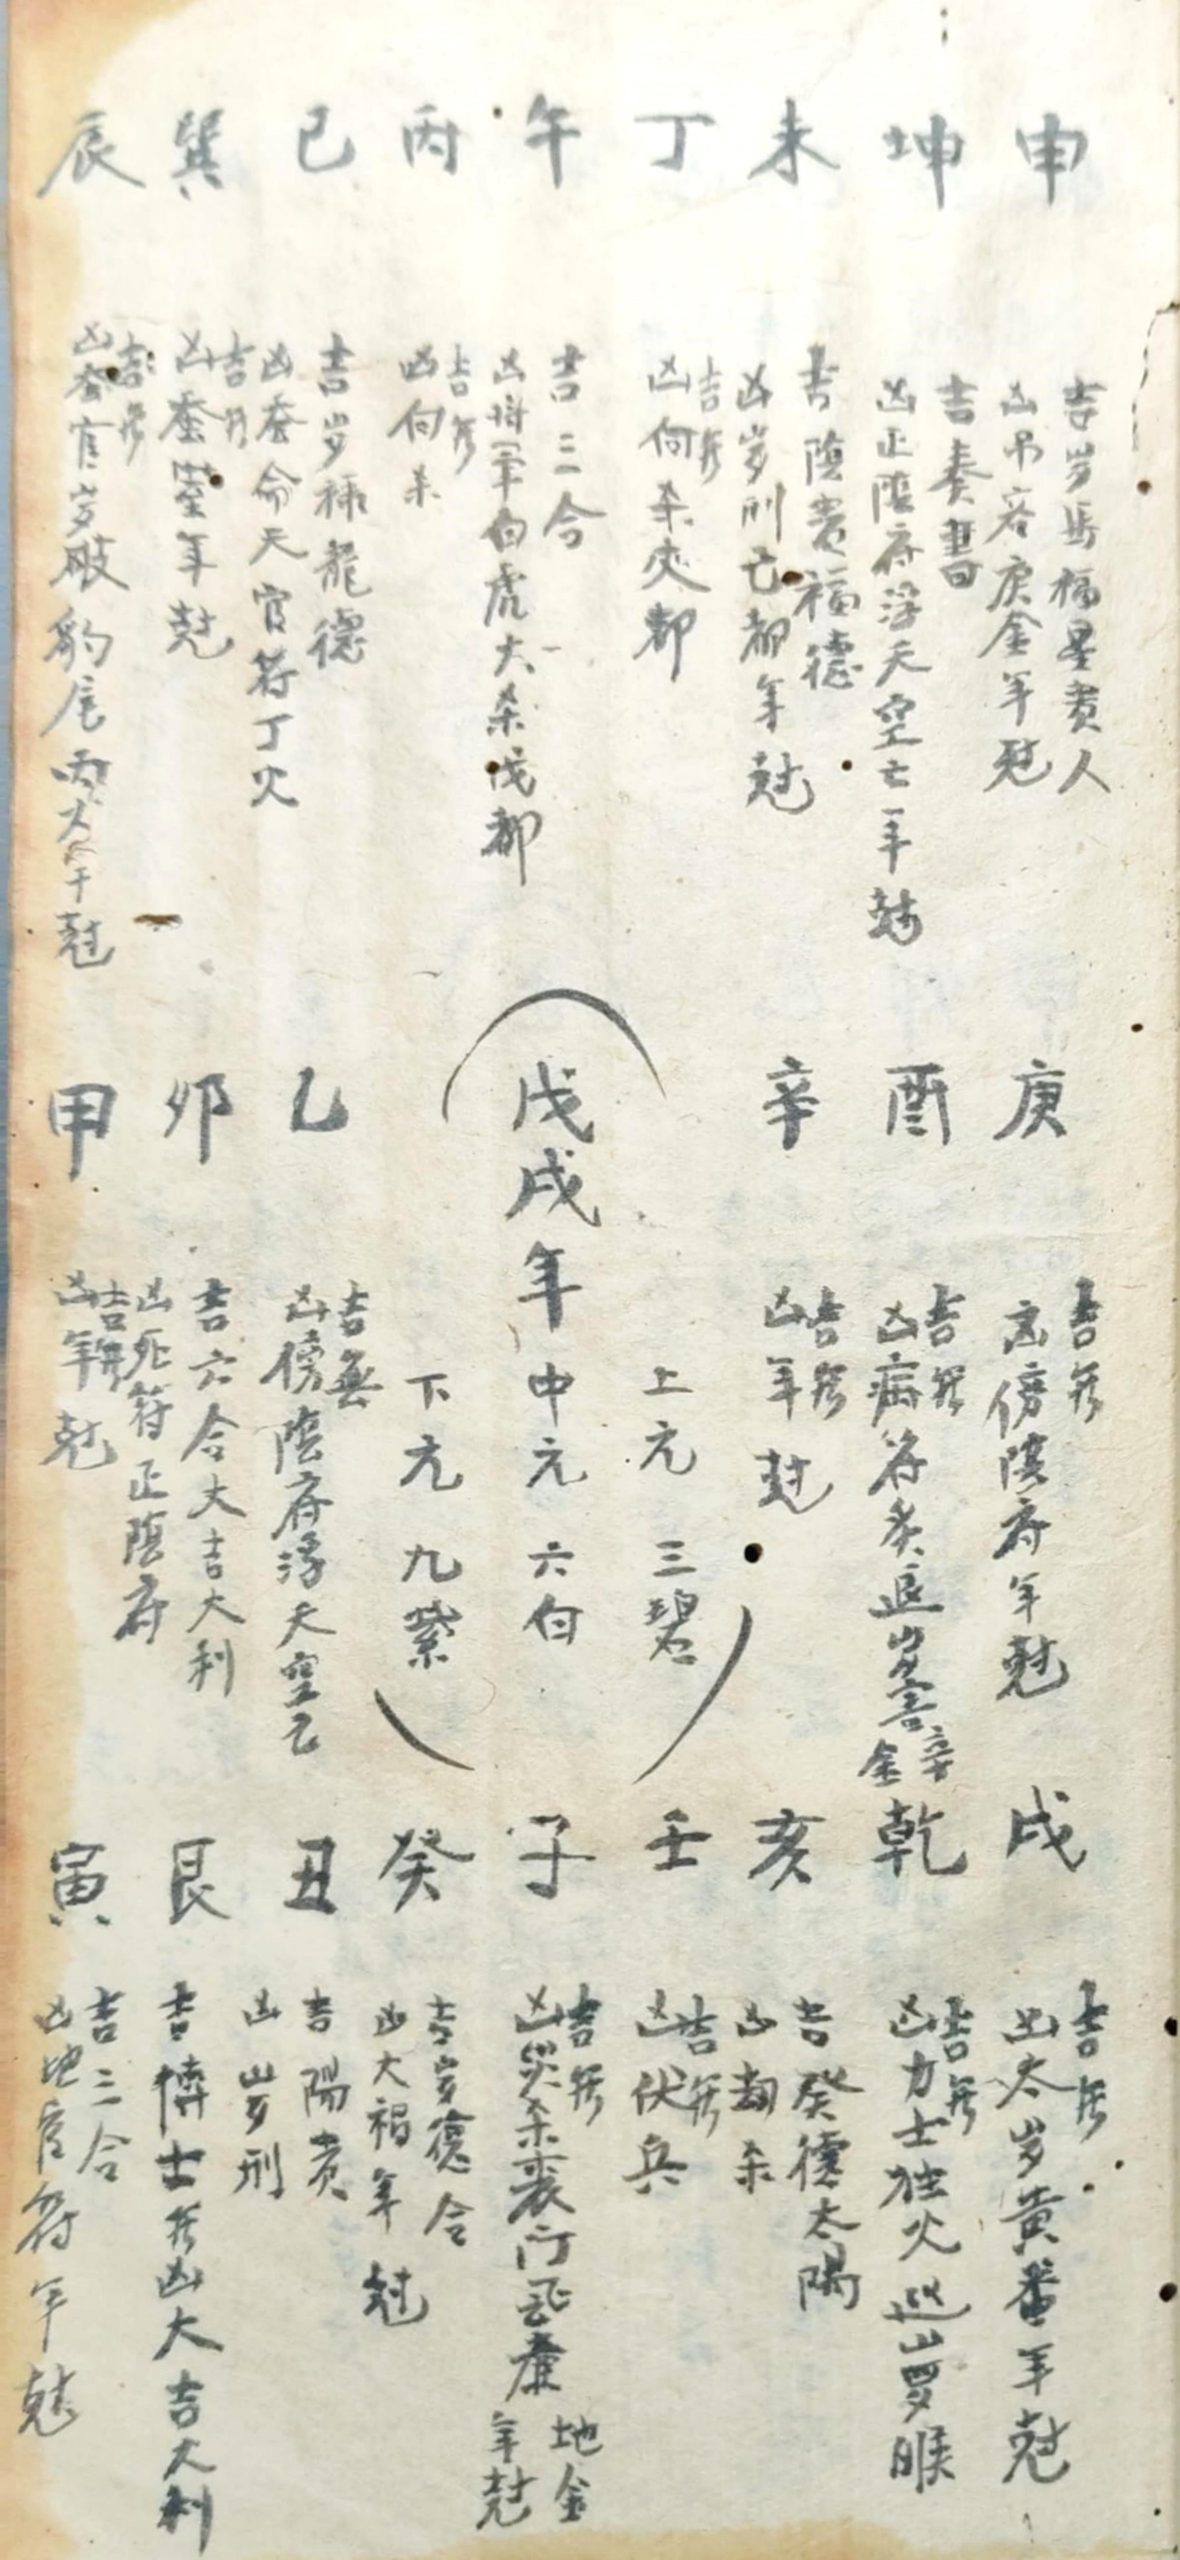 申
吉岁馬福星贵人
凶吊客庚金年尅
坤
吉奏書
凶正陰府浮天空亡年尅
未
吉陰贵福德
凶岁刑亡都年尅
丁
吉無
凶向杀夾都
午
吉三合
凶將軍白虎大杀戊都
丙
吉無
凶向杀
巳
吉岁禄龍德
凶蚕命天官符丁火
巽
吉無
凶蚕室年尅
辰
吉無
凶蚕官岁破豹尾丙火年尅
庚
吉無
凶傍陰府年尅
酉
吉無
凶病符炙退岁害辛金
辛
吉無
凶年尅
戊戌年
上元 三碧
中元 六白
下元 九紫
乙
吉無
凶傍陰府浮天空亡
卯
吉六合大吉大利
凶死符正陰府
甲
吉無
凶年尅
戌
吉無
凶太岁黄番年尅
乾
吉無
凶力士独火巡山罗睺
亥
吉癸德太陽
凶劫杀
壬
吉無
凶伏兵
子
吉無
凶災杀丧门飛廉地金年尅
癸
吉岁德合
凶大禍年尅
丑
吉陽贵
凶岁刑
艮
吉博士無凶大吉大利
寅
吉三合
凶地官符年尅